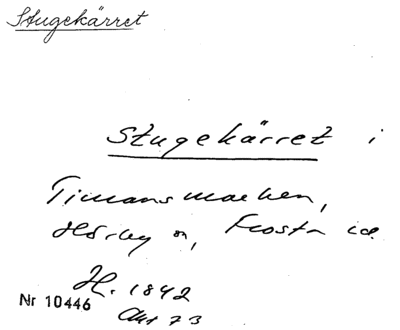 Stugekärret
Stugekärret i
Timansmarken,
Hörby sn, Frosta
H. 1842
Nr 10446
Akt 73